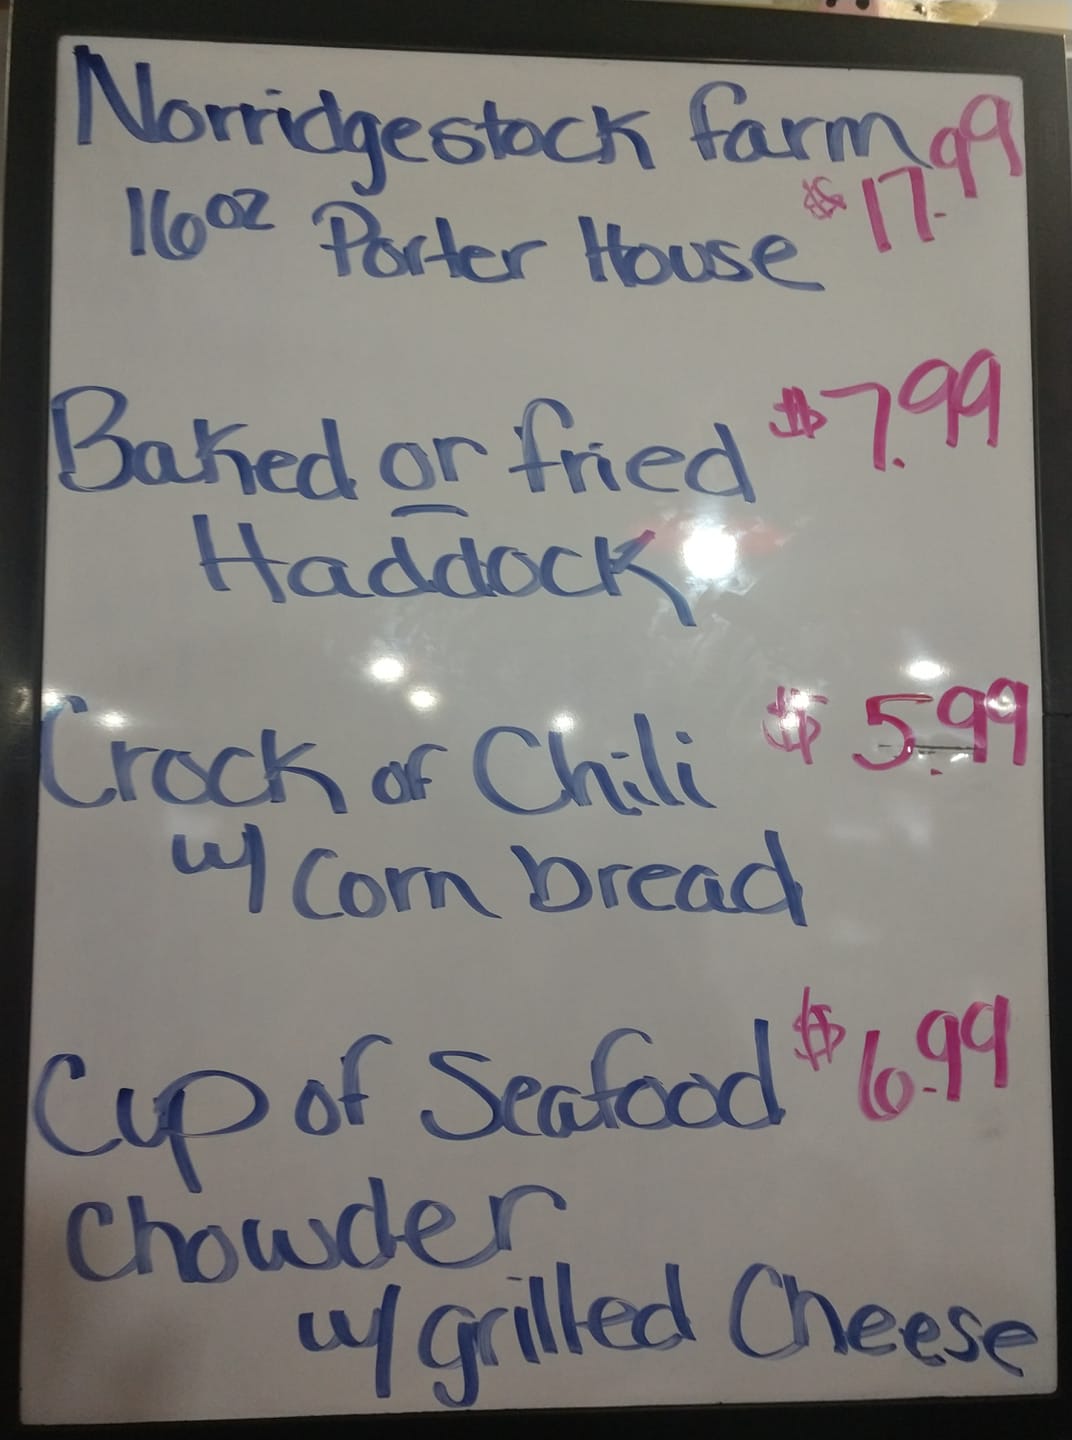 Norridgestock farm
16oz Porter House $17.99
Baked or fried $7.99
Haddock
Crock of Chili $5.99
w/ Corn bread
Cup of Seafood $6.99
Chowder
w/ grilled Cheese